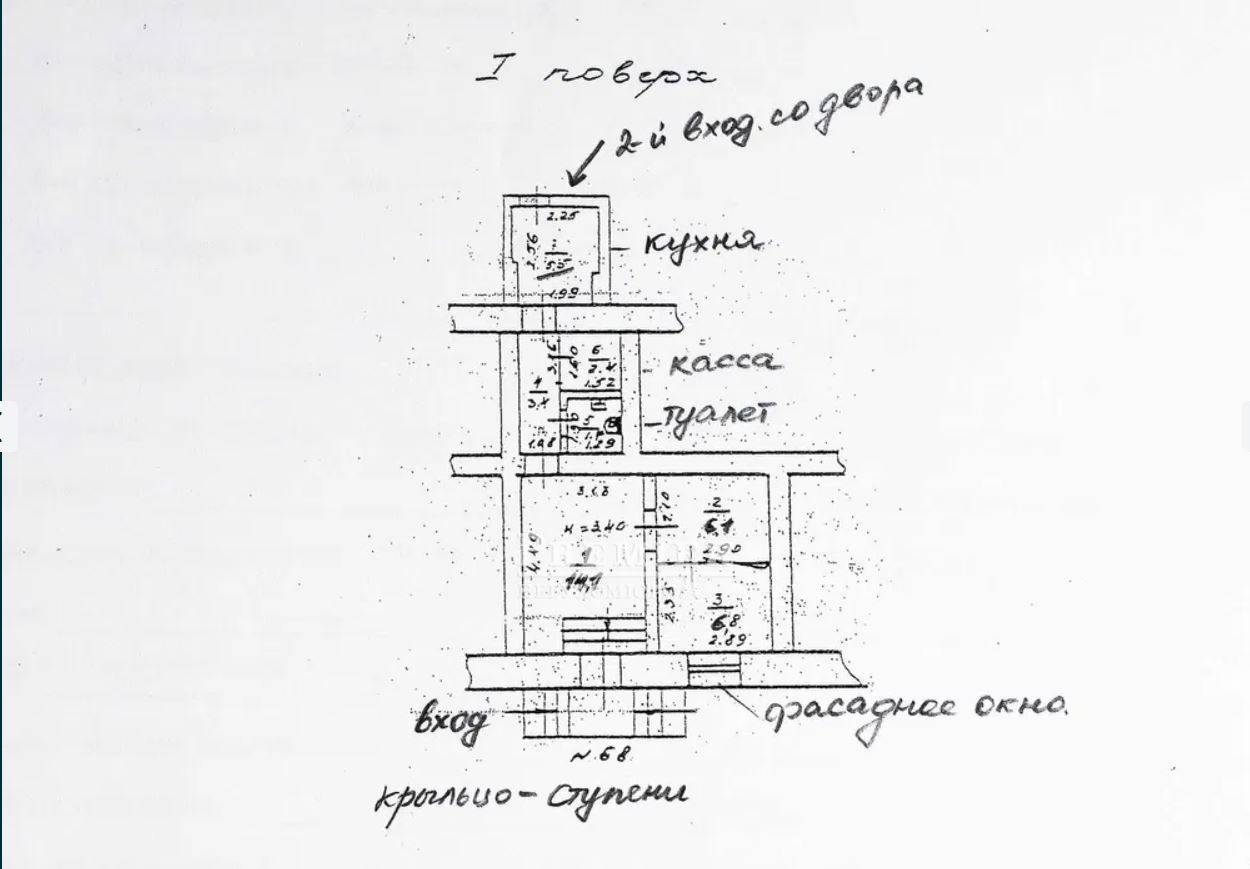 I поверх
2-й вход. со двора
2.25
кухня
2.56
5.5
1.99
6
2.4
1.60
1.52
касса
4
3.4
туалет
5
1.48
1.29
3.13
н=3.40
2.10
2
6.1
2.90
4.49
1
14.1
2.35
3
6.8
2.89
вход
фасадное окно.
№68
крыльцо - ступени